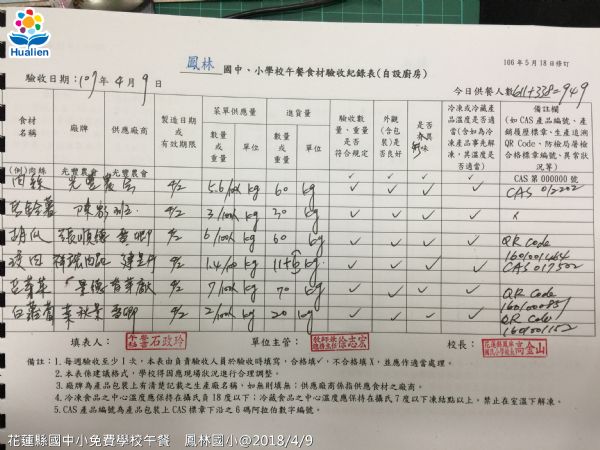 Hualien
106 年 5 月 18 日修訂
鳳林 國中、小學校午餐食材驗收紀錄表(自設廚房)
驗收日期：107 年 4 月 9 日
今日供餐人數611+338=949
食材名稱 廠牌 供應廠商 製造日期或有效期限 菜單供應量 進貨量 驗收數量、重量是否符合規定 外觀(含包裝)是否良好 是否無異味 冷凍或冷藏產品溫度是否適當(含如為冷凍產品事先解凍，其溫度是否適當) 備註欄(如 CAS 產品編號、產銷履歷標章、生產追溯 QR Code、防檢局屠檢合格標章編號、異常狀況等)
數量或重量 單位 數量或重量 單位
(例)肉絲 光豐農會 光豐農會 CAS 第 000000 號
肉絲 光豐農會 4/2 kg 60 kg ✓ ✓ ✓ ✓ CAS 012202
4/2 3/100人 kg 30 kg ✓ ✓ ✓ ✓ x
胡瓜 張順德 4/2 6/100人 kg 60 kg ✓ ✓ ✓ ✓ QR Code
1601001464
4/2 kg kg ✓ ✓ ✓ ✓ CAS 017502
4/2 7/100人 kg 70 kg ✓ ✓ ✓ ✓ QR Code
白蘿蔔 4/2 2/100人 kg 20 kg ✓ ✓ ✓ ✓ QR Code
1601001152
填表人： 石玫玲 單位主管： 徐志宏 校長： 向金山
備註：1.每週驗收至少 1 次，本表由負責驗收人員於驗收時填寫，合格填✓，不合格填 X，並應作適當處理。
2.本表係建議格式，學校得因應現場狀況進行合理調整。
3.廠牌為產品包裝上有清楚記載之生產廠名稱，如無則填無；供應廠商係指供應食材之廠商。
4.冷凍食品之中心溫度應保持在攝氏負 18 度以下；冷藏食品之中心溫度應保持在攝氏 7 度以下凍結點以上，禁止在室溫下解凍。
5.CAS 產品編號為產品包裝上 CAS 標章下沿之 6 碼阿拉伯數字編號。
花蓮縣國中小免費學校午餐 鳳林國小@2018/4/9